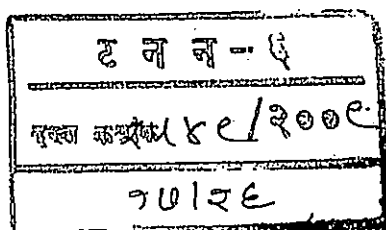 ट न न - ५
दस्त क्रमांक ५४९/२००९
१७/२६